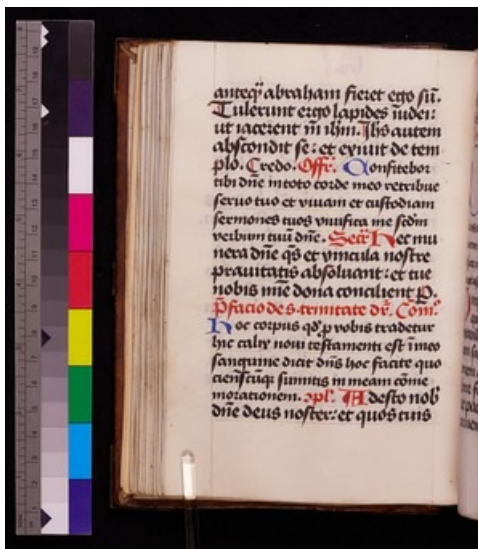 anteq̄ abraham fieret ego sū.
Tulerunt ergo lapides iudei:
ut iacerent in ihm. Ihs autem
abscondit se: et exiuit de tem
plo. Credo. Offr̄. Confitebor
tibi dn̄e in toto corde meo retribue
seruo tuo et viuam et custodiam
sermones tuos viuifica me scdm
verbum tuū dn̄e. Secr̄ Hec mu
nera dn̄e qs et vincula nostre
prauitatis absoluant: et tue
nobis mie dona concilient P.
P̄facio de s. trinitate dr̄. Com̄.
Hoc corpus qd p vobis tradetur
hic calix noui testamenti est ī meo
sanguine dicit dn̄s hoc facite quo
ciēscūq; sumitis in meam cōme
morationem. ɔpl. Adesto nob
dn̄e deus noster: et quos tuis